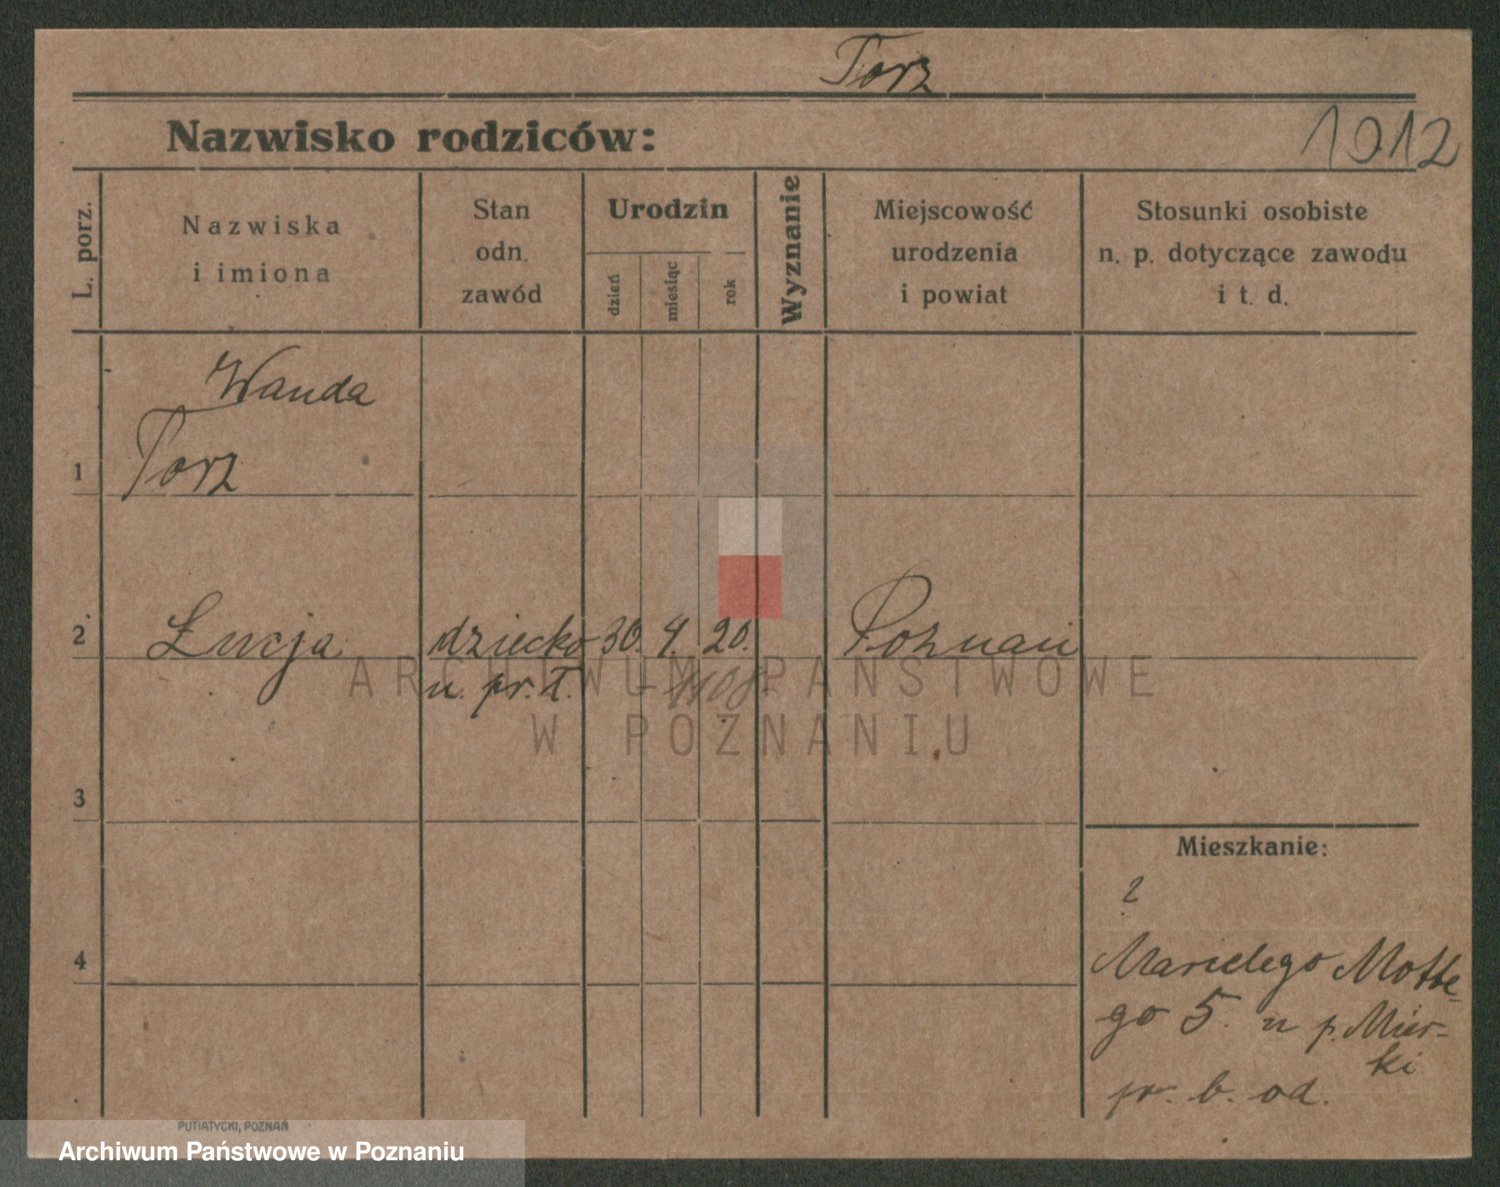 Torz
Nazwisko rodziców:
1912
L. porz.
Nazwiska
i imiona
Stan
odn.
zawód
Urodzin
dzień
miesiąc
rok
Wyznanie
Miejscowość
urodzenia
i powiat
Stosunki osobiste
n. p. dotyczące zawodu
i t. d.
Wanda
1 Torz
2 Łucja dziecko 30. 9. 20. Poznań
u. pr. T.
ARCHIWUM PAŃSTWOWE
W POZNANIU
3
Mieszkanie:
2
4 Marcelego Motte-
go 5. u p. Mier-
ki
pr. b. od.
PUTIATYCKI, POZNAŃ
Archiwum Państwowe w Poznaniu